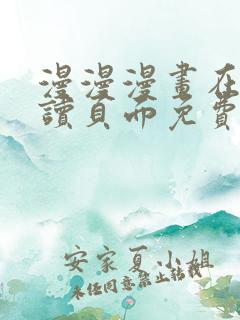 漫漫漫畫在
讀頁面免費
安家夏小姐
未任同意禁止轉載